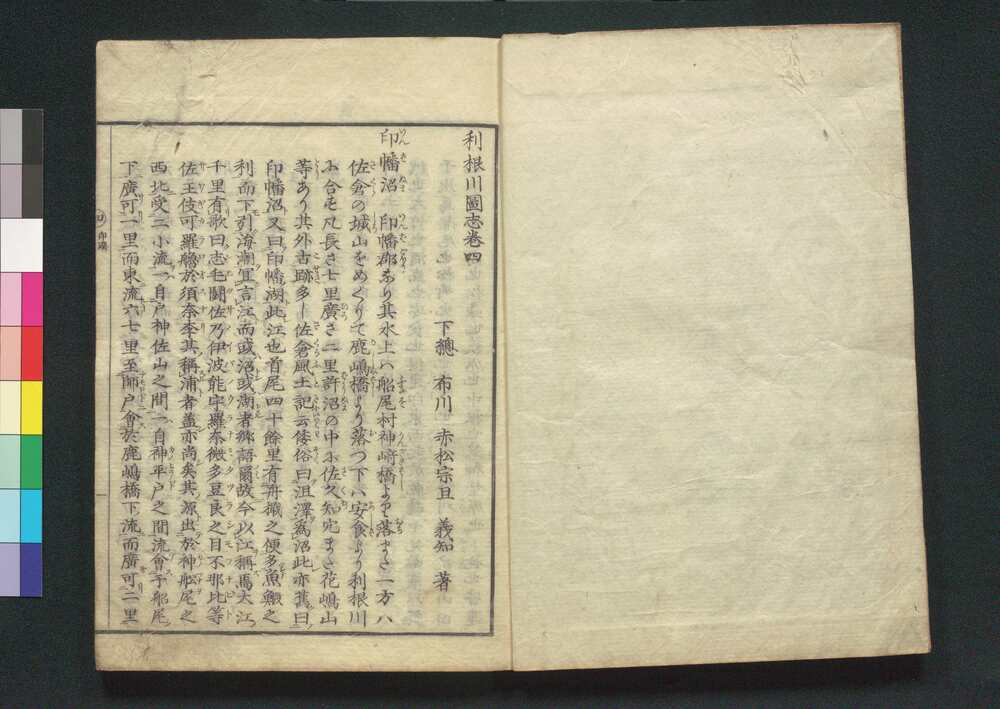 利根川圖志卷四
下總 布川 赤松宗旦 義知 著
印幡沼 印幡郡なり其水上ハ船尾村神﨑橋より落また一方ハ
佐倉の城山をめぐりて鹿嶋橋より落つ下ハ安食より利根川
に合す凡長さ七里廣さ二里許沼の中に佐久知穴また花嶋山
等あり其外古跡多し佐倉風土記云倭俗曰沮澤爲沼此亦舊曰
印幡沼又曰印幡湖此江也首尾四十餘里有舟檝之便多魚鰕之
利而下引海潮宜言江而或沼或湖者郷語爾故今以江稱焉大江
千里有歌曰志毛闘佐乃伊波能宇羅奈微多豆良之目不那比等
佐王伎可羅艪於須奈李其稱浦者蓋亦尚矣其源出於神舩尾之
西北受二小流一自戸神佐山之間一自神平戸之間流會于船尾
下廣可一里而東流六七里至師戸會於鹿嶋橋下流而廣可二里